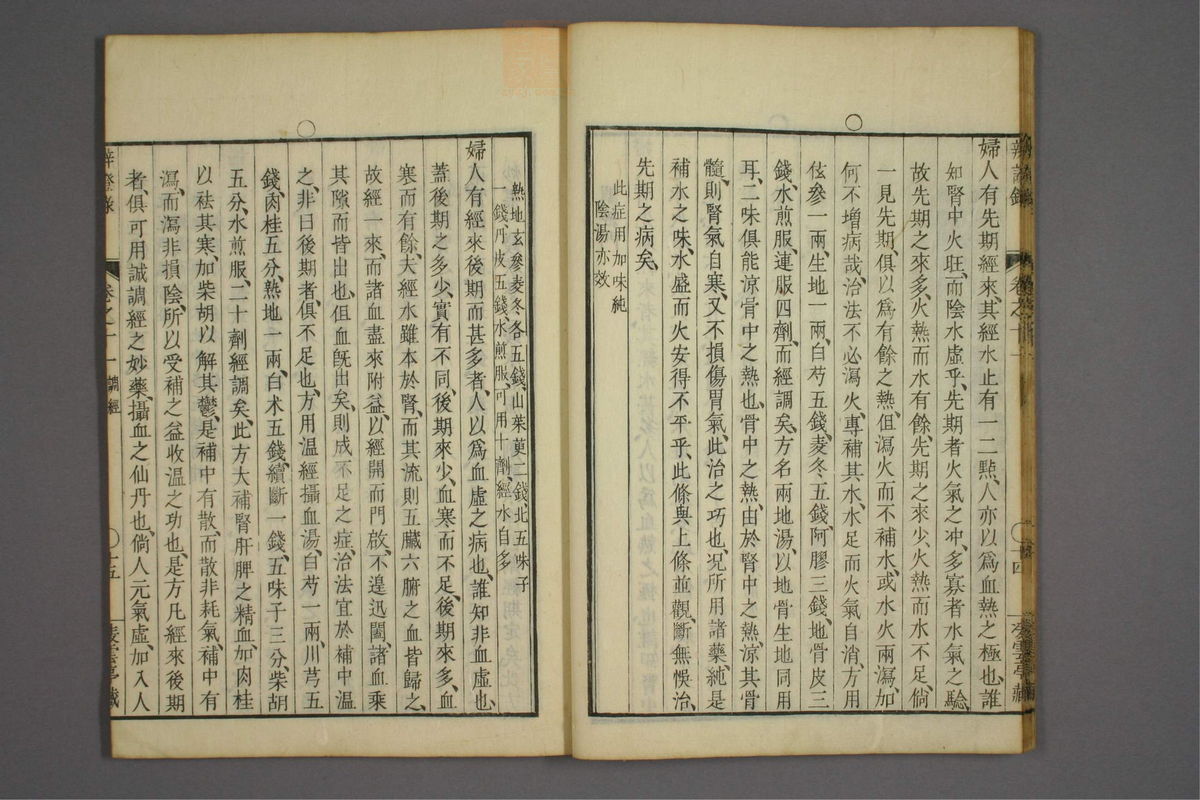 婦人有先期經來、其經水止有一二㸃、人亦以爲血熱之極也、誰
知腎中火旺、而陰水虛乎、先期者火氣之冲、多寡者水氣之驗、
故先期之來多、火熱而水有餘、先期之來少、火熱而水不足、倘
一見先期、俱以爲有餘之熱、但瀉火而不補水、或水火兩瀉、加
何不增病哉、治法不必瀉火、專補其水、水足而火氣自消、方用
玄參一兩、生地一兩、白芍五錢、麥冬五錢、阿膠三錢、地骨皮三
錢、水煎服、連服四劑、而經調矣、方名兩地湯、以地骨生地同用
耳、二味俱能涼骨中之熱也、骨中之熱、由於腎中之熱、涼其骨
髓、則腎氣自寒、又不損傷胃氣、此治之巧也、况所用諸藥、純是
補水之味、水盛而火安得不平乎、此條與上條並觀、斷無悞治、
先期之病矣、
此症用加味純
陰湯亦效
熟地玄參麥冬各五錢、山茱萸二錢北五味子
一錢丹皮五錢、水煎服、可用十劑、經水自多、
婦人有經來後期而甚多者、人以爲血虛之病也、誰知非血虛也、
蓋後期之多少、實有不同、後期來少、血寒而不足、後期來多、血
寒而有餘、夫經水雖本於腎、而其流則五臟六腑之血皆歸之、
故經一來、而諸血盡來附益、以經開而門啟、不遑迅闔、諸血乘
其隙而皆出也、但血旣出矣、則成不足之症、治法宜於補中溫
之、非曰後期者俱不足也、方用溫經攝血湯、白芍一兩、川芎五
錢、肉桂五分、熟地一兩、白术五錢、續斷一錢、五味子三分、柴胡
五分、水煎服、二十劑經調矣、此方大補腎肝脾之精血、加肉桂
以祛其寒、加柴胡以解其鬱、是補中有散、而散非耗氣、補中有
瀉、而瀉非損陰、所以受補之益收溫之功也、是方凡經來後期
者、俱可用誠調經之妙藥、攝血之仙丹也、倘人元氣虛、加入人
卷之十一 調經
十五